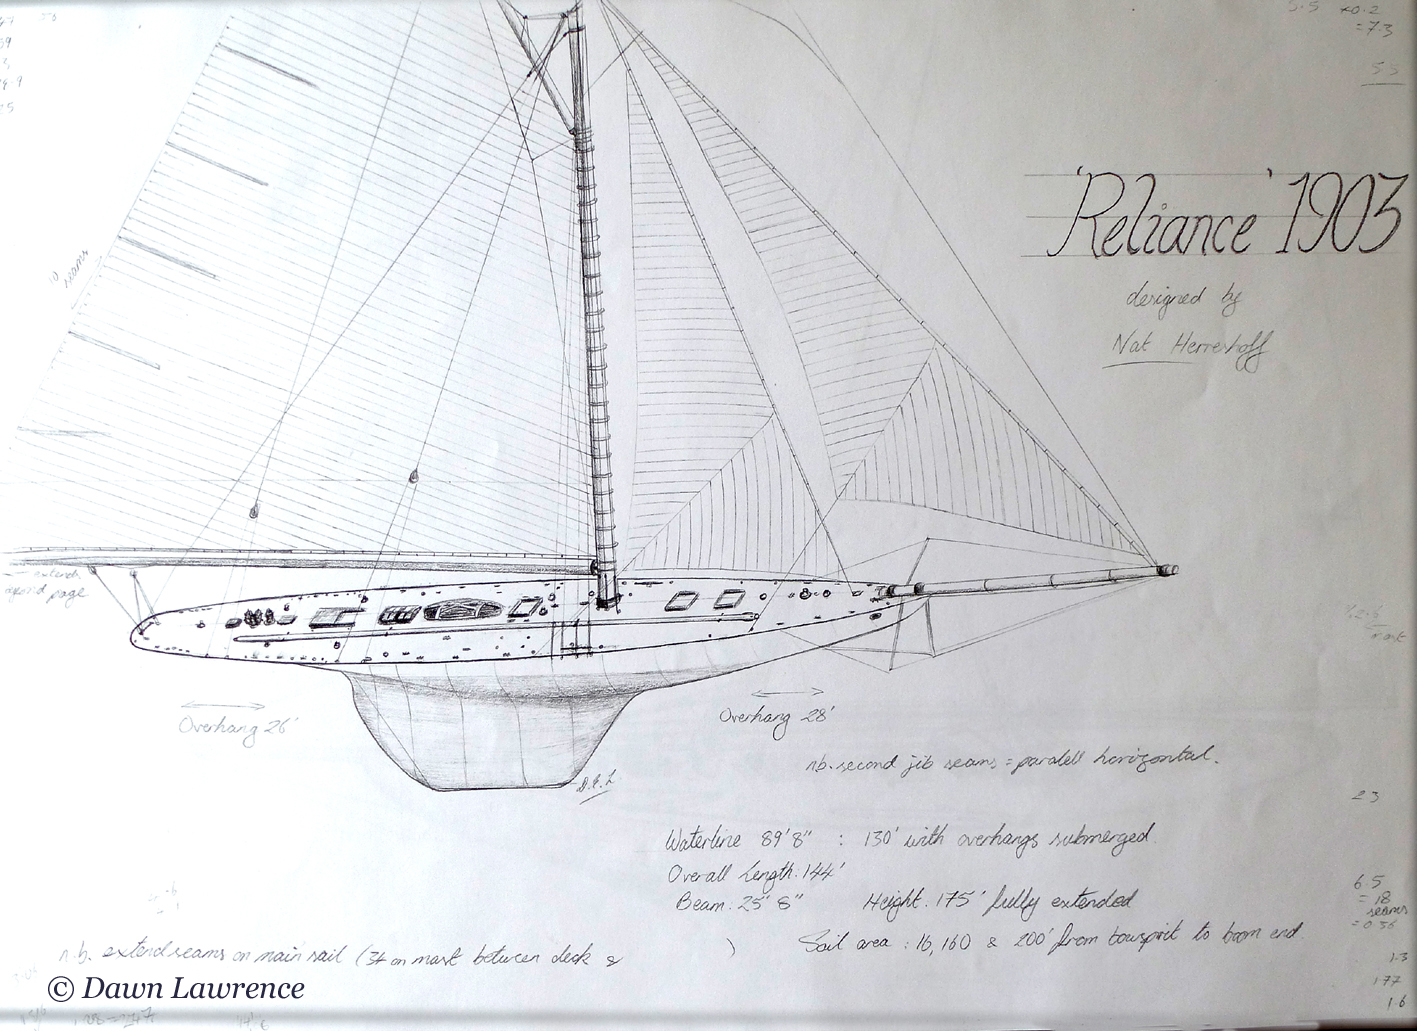 5.5 x0.2
=7.3
55
'Reliance' 1903
designed by
Nat Herreshoff
10 seams
extends
beyond page
Overhang 26'
Overhang 28'
D.E.L
nb. second jib seams = paralell horizontal.
23
Waterline 89'8" : 130' with overhangs submerged
Overall Length: 144'
Beam: 25" 8" Height. 175' fully extended
Sail area : 16,160 & 200' from bowsprit to boom end
6.5
= 18
seams
= 0.36
n.b. extend seams on main sail (34 on mast between deck & )
1.3
177
1.6
© Dawn Lawrence